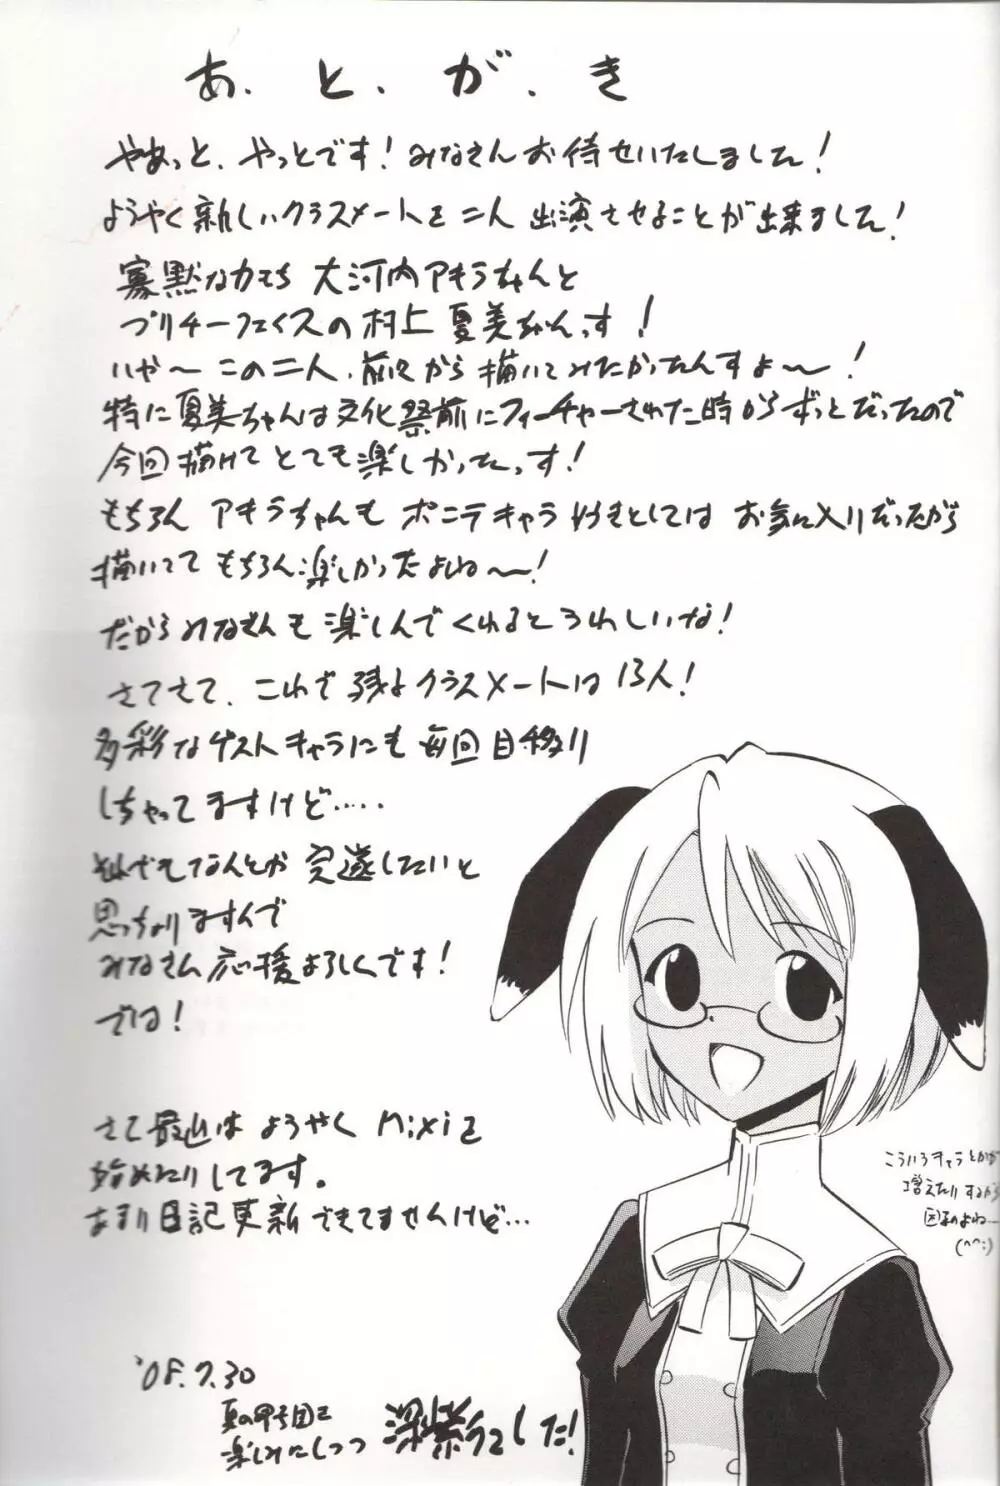 あ、と、が、き
やあっと、やっとです！みなさんお待せいたしました！
ようやく新しいクラスメートを二人 出演させることが出来ました！
寡黙な力もち 大河内アキラちゃんと
プリチーフェイスの村上夏美ちゃんっす！
いや〜この二人、前々から描いてみたかったんすよ〜！
特に夏美ちゃんは文化祭前にフィーチャーされた時からずっとだったので
今回描けてとても楽しかったっす！
もちろん アキラちゃんも ポニテキャラ好きとしては お気に入りだったから
描いてて もちろん楽しかったよね〜！
だからみなさんも楽しんでくれるとうれしいな！
さてさて、これで残るクラスメートは13人！
多彩なゲストキャラにも毎回目移り
しちゃってますけど‥‥‥
それでもなんとか完遂したいと
思っちょりますんで
みなさん応援よろしくです！
では！
さて最近は ようやく mixiを
始めたりしてます。
あまり日記更新できてませんけど…
こういうキャラとかが
増えたりするから
困るのよね…
(^^;)
'08.7.30
夏の甲子園を
楽しみにしつつ 深紫でした！